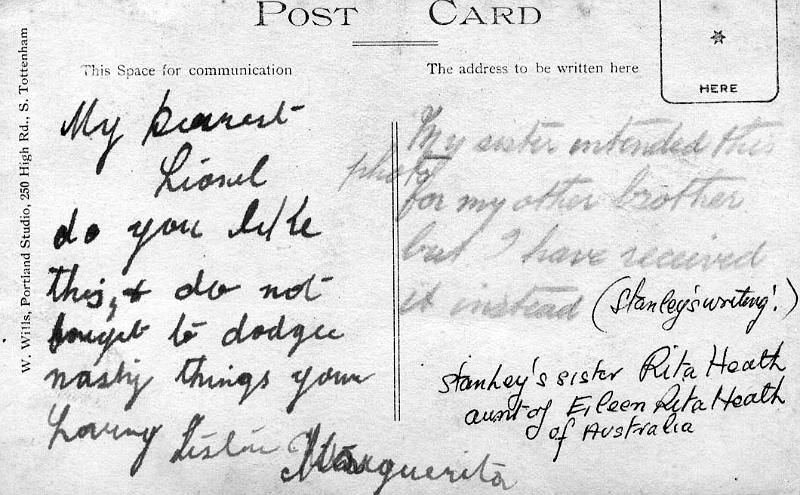 POST CARD
This Space for communication
The address to be written here
HERE
W. Wills, Portland Studio, 250 High Rd., S. Tottenham
My Dearest
Lionel
do you like
this, & do not
forget to dodge
nasty things your
Loving Sister Marguerita
My sister intended this
photo
for my other brother
but I have received
it instead (Stanley's writing!)
Stanley's sister Rita Heath
aunt of Eileen Rita Heath
of Australia